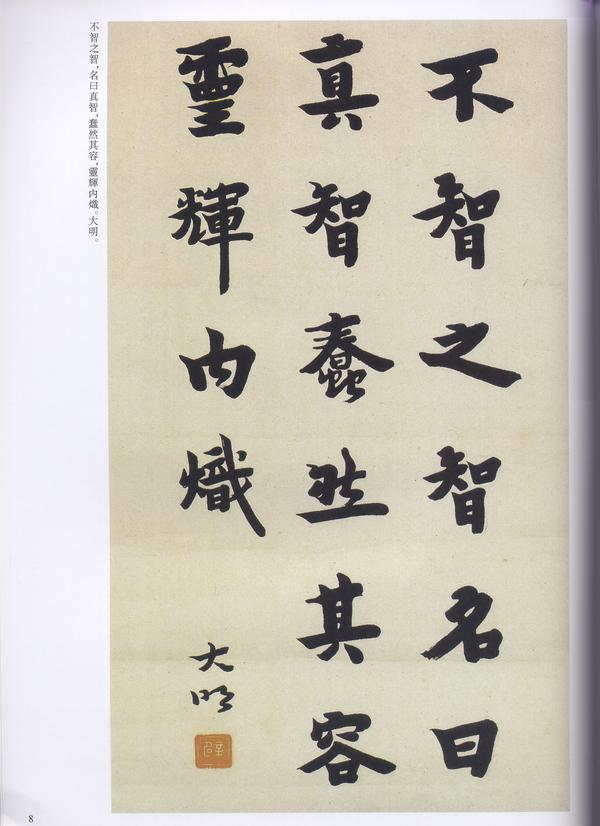 不智之智名曰
真智蠢然其容
靈輝内熾
大明
不智之智，名曰真智，蠢然其容，靈輝内熾。大明。
8